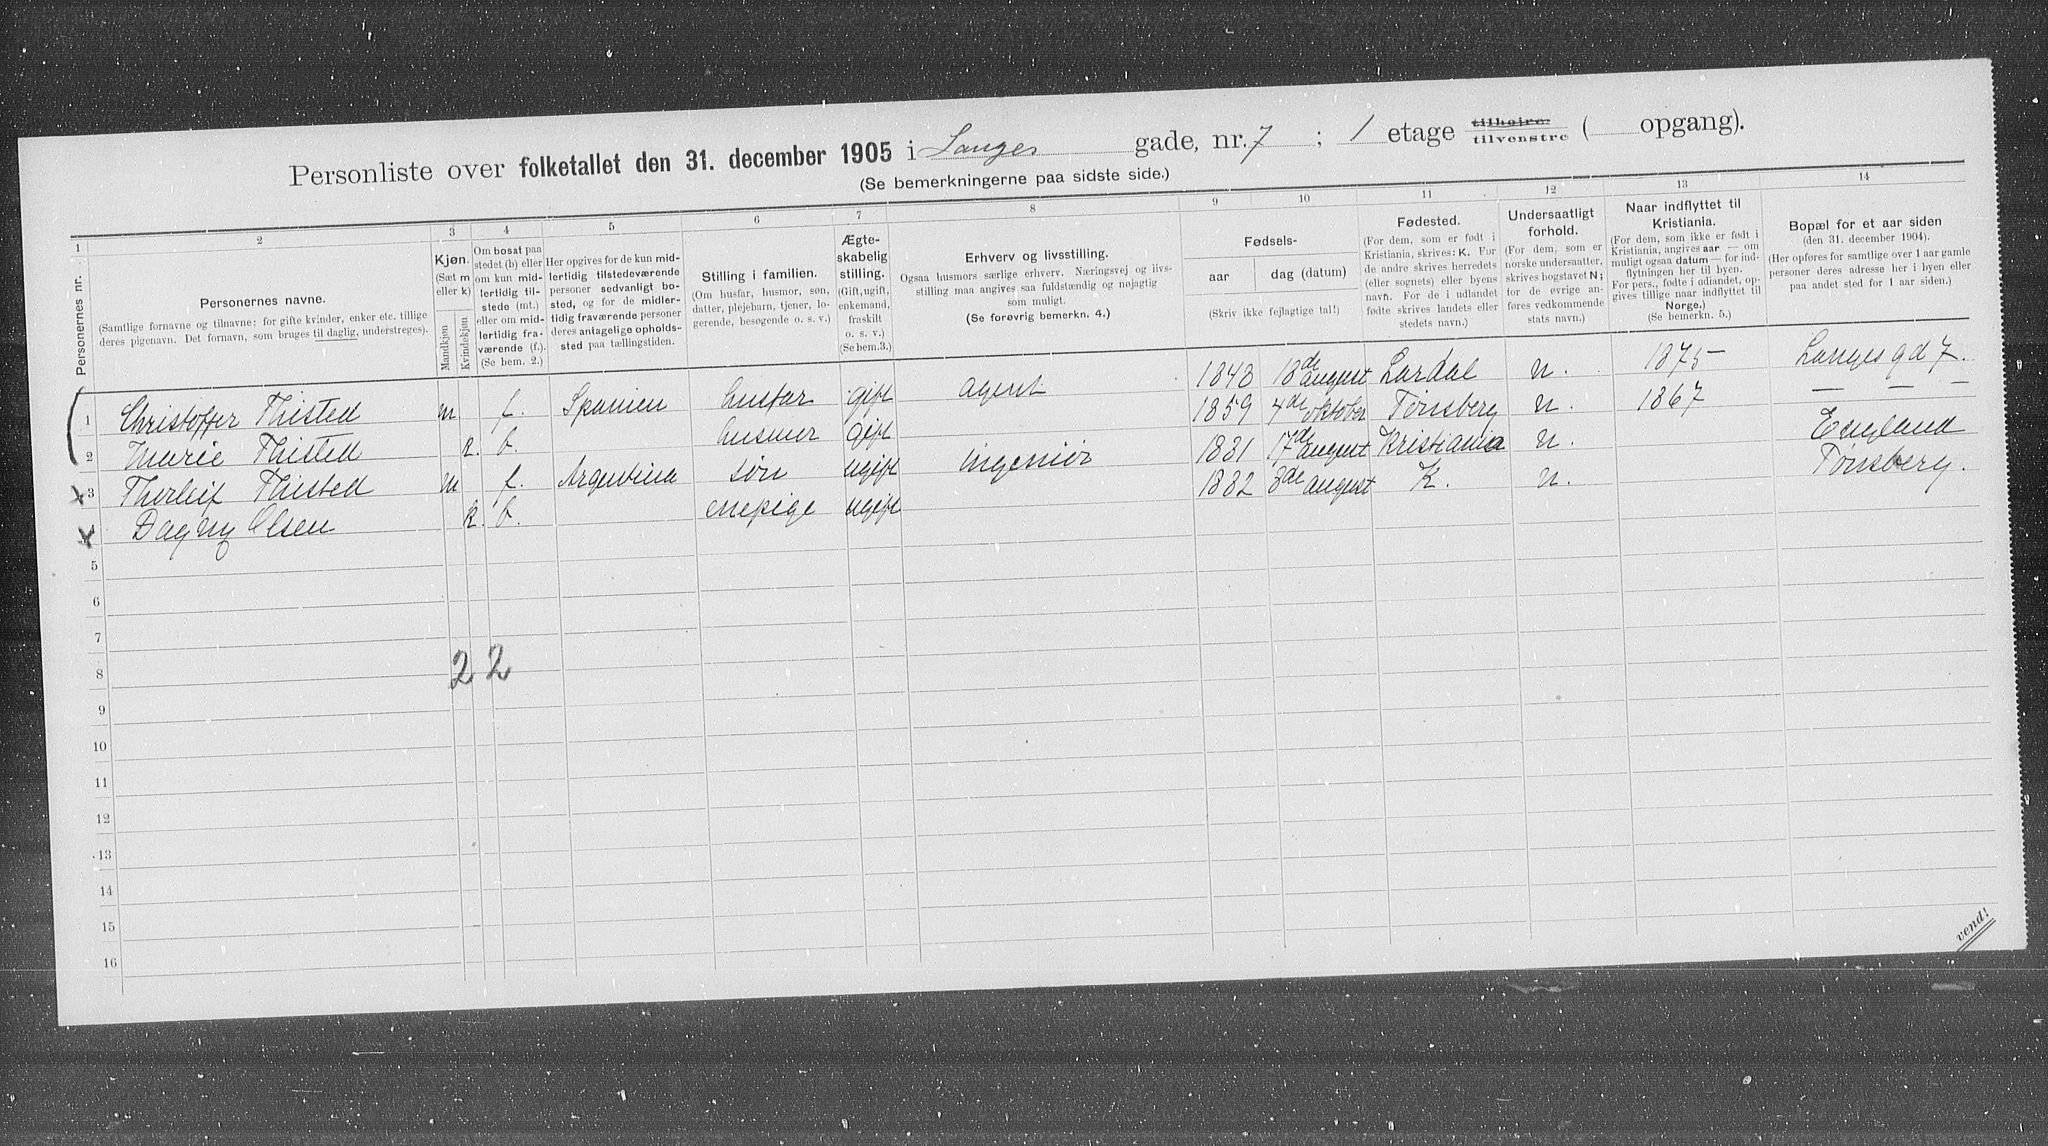 Personliste over folketallet den 31. december 1905 i Langes gade, nr. 7 ; 1 etage tilhøire. tilvenstre ( opgang).
(Se bemerkningerne paa sidste side.)
1 2 3 4 5 6 7 8 9 10 11 12 13 14
Personernes nr.
Personernes navne.
(Samtlige fornavne og tilnavne; for gifte kvinder, enker etc. tillige
deres pigenavn. Det fornavn, som bruges til daglig, understreges).
Kjøn.
(Sæt m
eller k)
Mandkjøn
Kvindekjøn
Om bosat paa
stedet (b) eller
om kun mid-
lertidig til-
stede (mt.)
eller om mid-
lertidig fra-
værende (f.).
(Se bem. 2.)
Her opgives for de kun mid-
lertidig tilstedeværende
personer sedvanligt bo-
sted, og for de midler-
tidig fraværende personer
deres antagelige opholds-
sted paa tællingstiden.
Stilling i familien.
(Om husfar, husmor, søn,
datter, plejebarn, tjener, lo-
gerende, besøgende o. s. v.)
Ægte-
skabelig
stilling.
(Gift, ugift,
enkemand,
fraskilt
o. s. v.)
(Se bem.3.)
Erhverv og livsstilling.
Ogsaa husmors særlige erhverv. Næringsvej og livs-
stilling maa angives saa fuldstændig og nøjagtig
som muligt.
(Se forøvrig bemerkn. 4.)
Fødsels-
aar dag (datum)
(Skriv ikke fejlagtige tal!)
Fødested.
(For dem, som er født i
Kristiania, skrives: K. For
de andre skrives herredets
(eller sognets) eller byens
navn. For de i udlandet
fødte skrives landets eller
stedets navn.)
Undersaatligt
forhold.
(For dem, som er
norske undersaatter,
skrives bogstavet N;
for de øvrige an-
føres vedkommende
stats navn.)
Naar indflyttet til
Kristiania.
(For dem, som ikke er født i
Kristiania, angives aar — om
muligt ogsaa datum — for ind-
flytningen her til byen.
For pers., fødte i udlandet, op-
gives tillige naar indflyttet til
Norge.)
(Se bemerkn. 5.)
Bopæl for et aar siden
(den 31. december 1904).
(Her opføres for samtlige over 1 aar gamle
personer deres adresse her i byen eller
paa andet sted for 1 aar siden.)
1 Christoffer Thisted m f. Spanien husfar gift agent 1848 18de august Lardal n. 1875 — Langes gd 7.
2 Marie Thisted k. b. husmor gift 1859 4de oktober Tønsberg n. 1867 — — —
3 Thorleif Thisted m f. Argentina søn ugift ingeniør 1881 17de august Kristiania n. England
4 Dagny Olsen k. b. enepige ugift 1882 3de august K. n. Tønsberg.
5
6
7
8 2 2
9
10
11
12
13
14
15
16
vend!